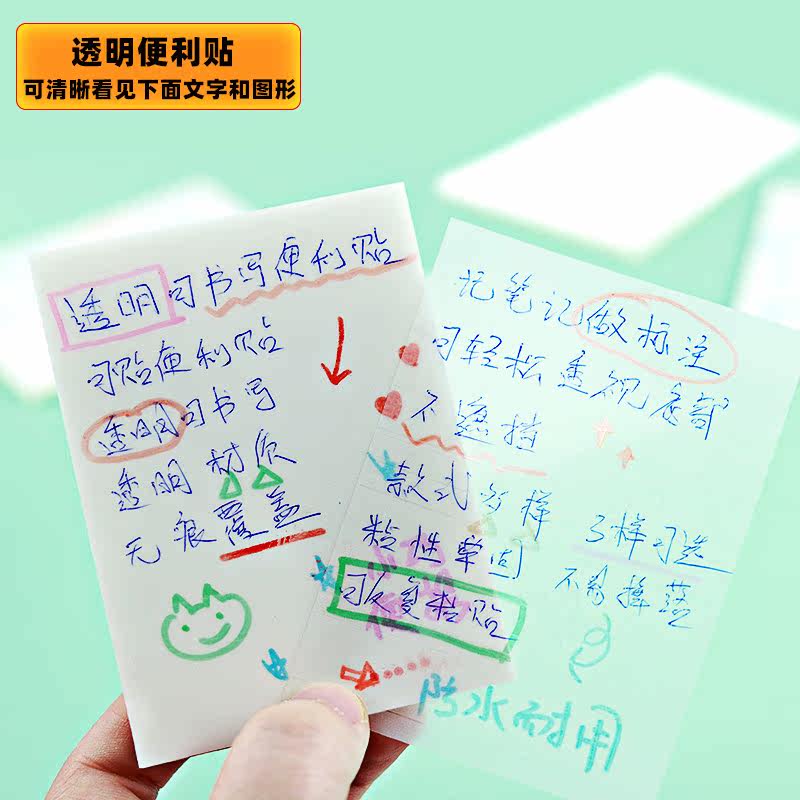 透明便利贴
可清晰看见下面文字和图形
透明可书写便利贴
可贴便利贴
透明可书写
透明材质
无痕覆盖
记笔记做标注
可轻松透视底部
不遮挡
款式多样
3样可选
粘性牢固
不易掉落
可反复粘贴
防水耐用